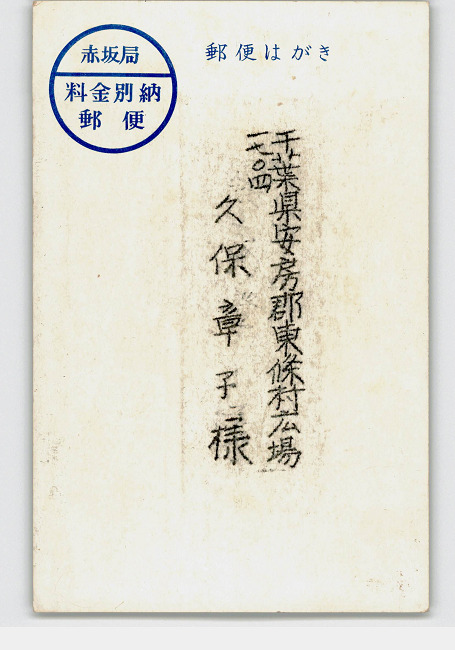 赤坂局
料金別納
郵便
郵便はがき
千葉県安房郡東條村広場
一七〇四
久保章子様